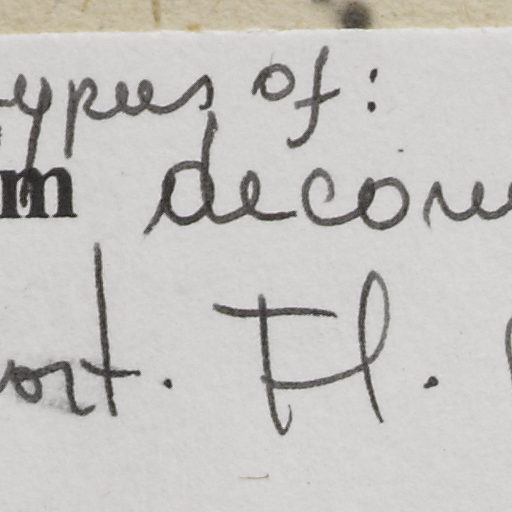 types of:
m decor
ort. Fl.